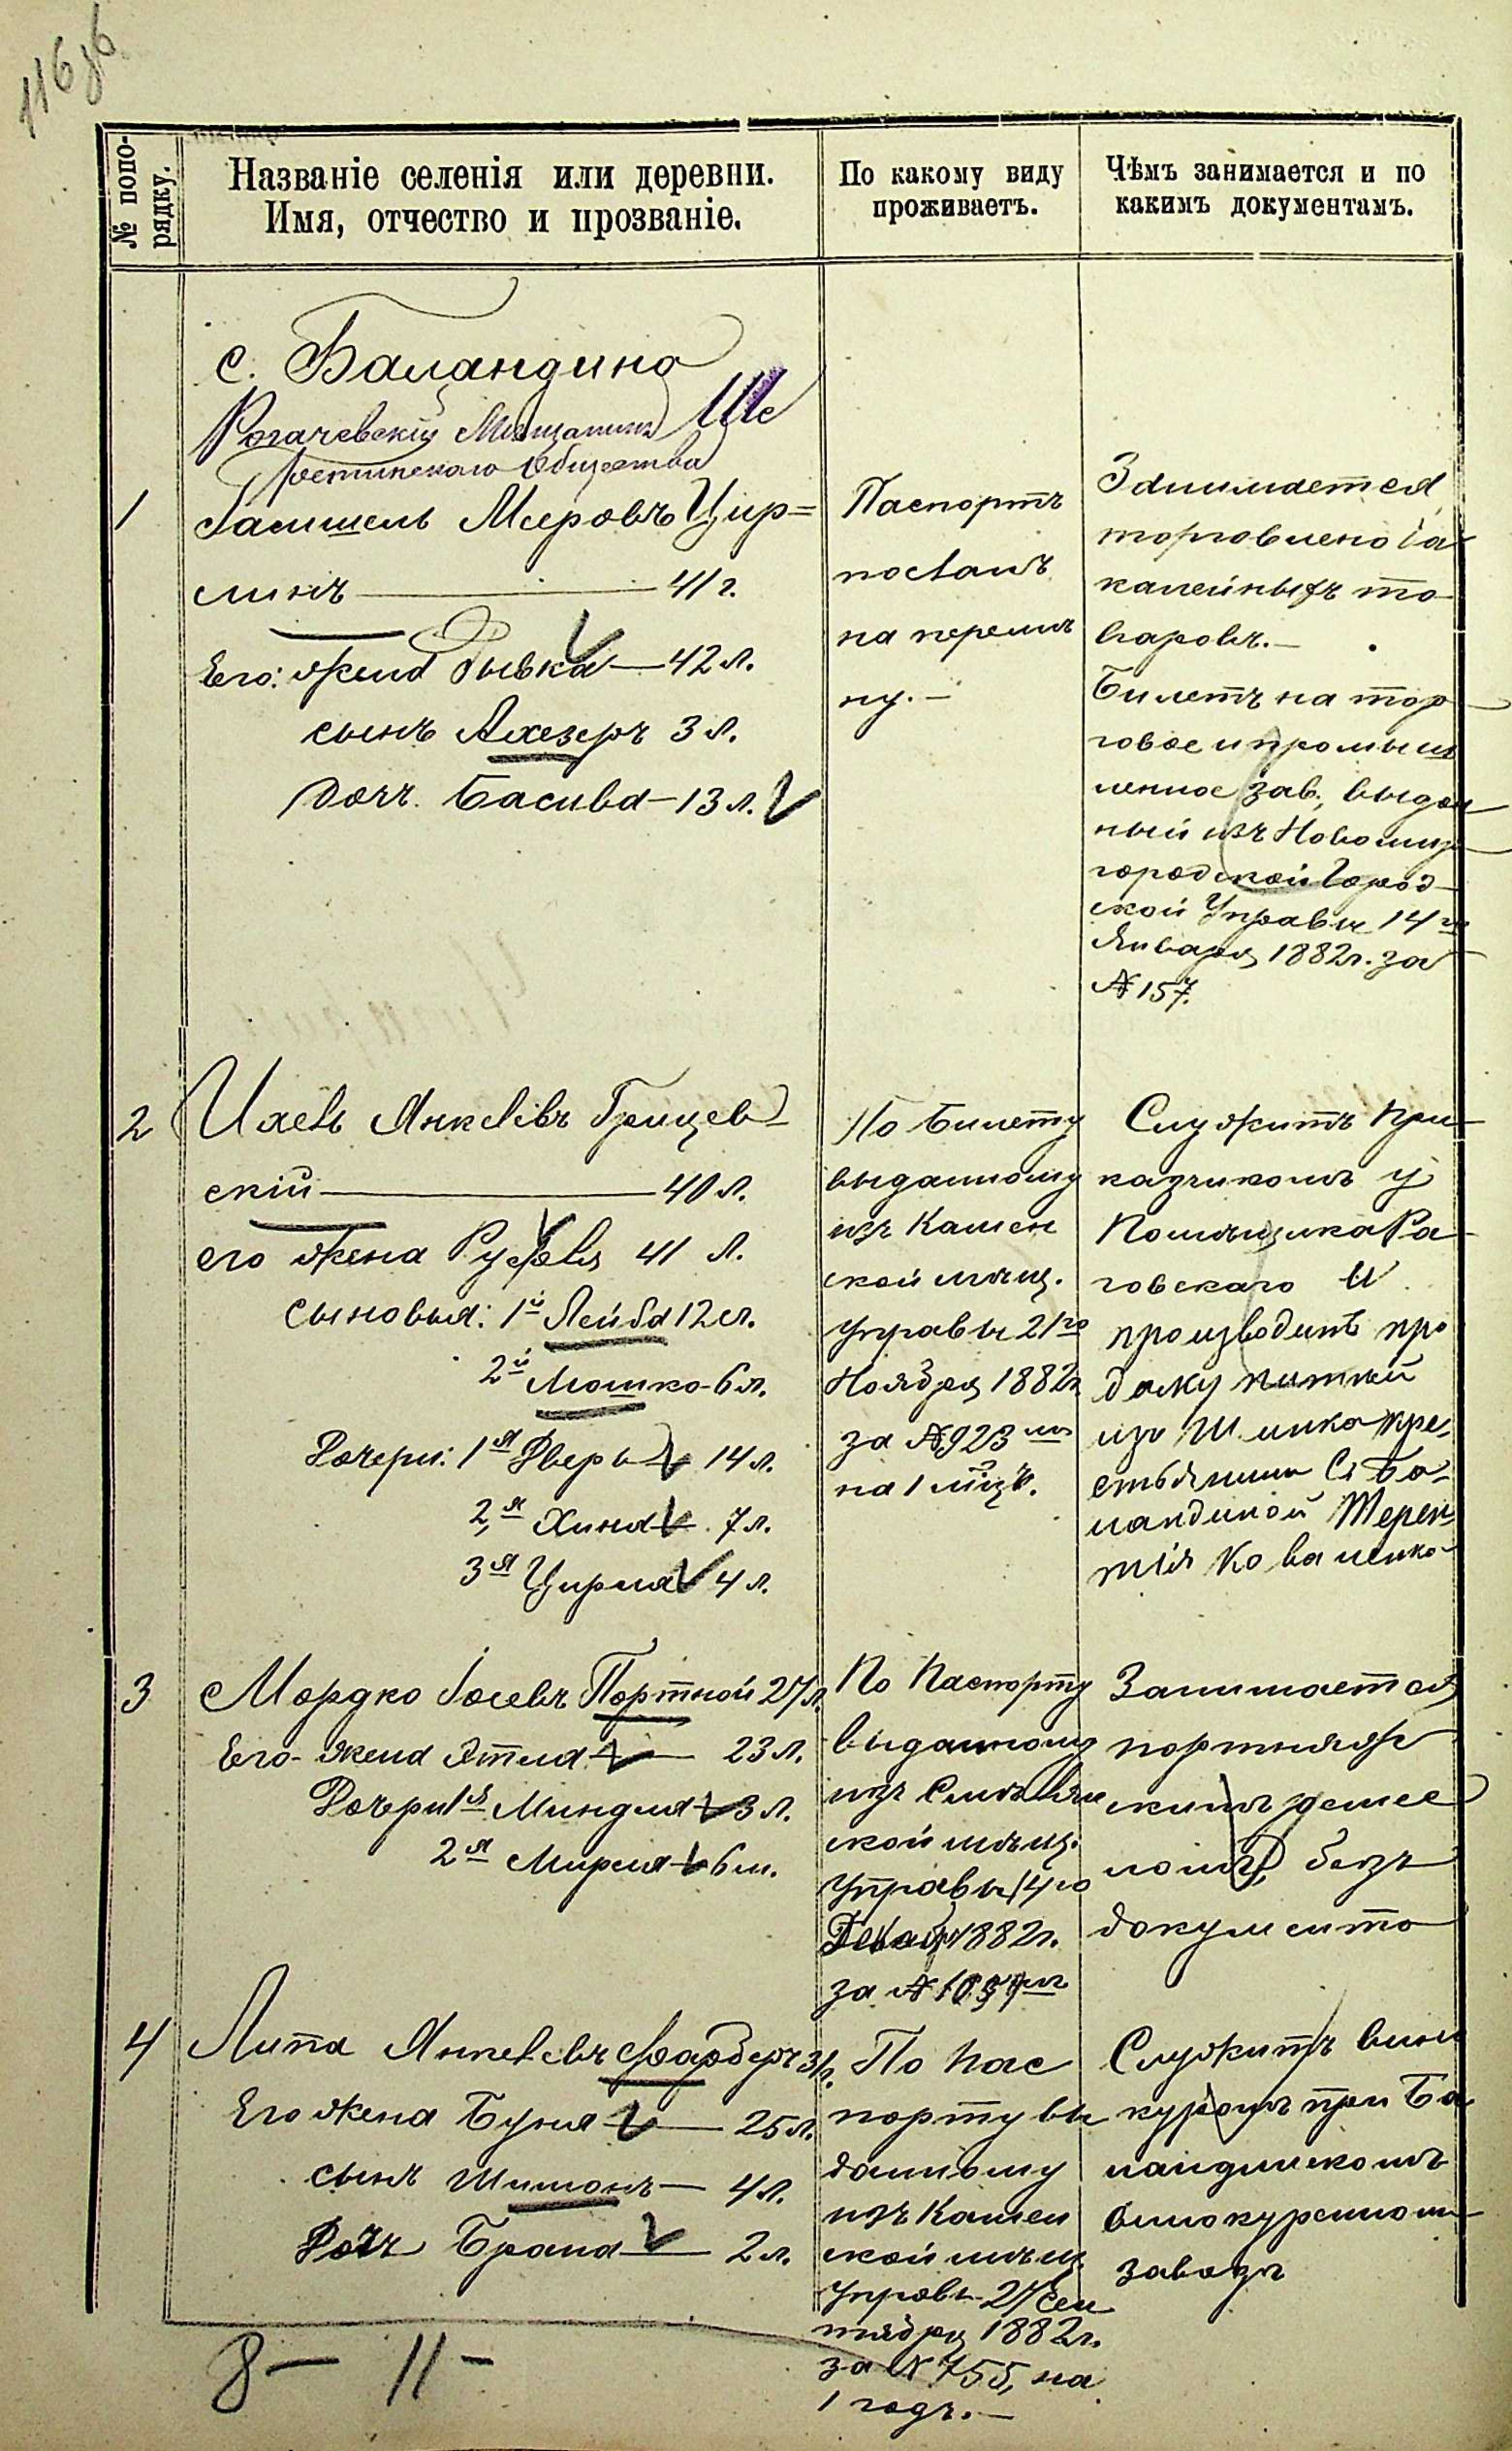 116 об
№ попо-
рядку.
Названіе селенія или деревни.
Имя, отчество и прозваніе.
По какому виду
проживаетъ.
Чѣмъ занимается и по
какимъ документамъ.
с. Баландино
Рогачевскій Мѣщанинъ
Общества
1
Мееровъ Цир=
линъ — 41 г.
Его: жена Рывка — 42 л.
сынъ Лхезеръ 3 л.
дочь. Басива — 13 л.
Паспортъ
посланъ
на перемѣ
ну. —
Занимается
торговлею ба
калейныхъ то
варовъ. —
Билетъ на тор
говое и промыш
ленное зав., выдан
ный изъ Новомир
городской Город
ской Управы 14 го
Января 1882 г. за
№ 157.
2
Янкелевъ Грищев-
скій — 40 л.
его жена 41 л.
сыновья: 1й Лейба 12 л.
2й Мошко - 6 л.
Дочери: 1я Двера 14 л.
2я Хина 7 л.
3я Цирля 4 л.
По билету
выданному
изъ Камен
ской мѣщ.
управы 21го
Ноября 1882 г.
за № 923 мъ
на 1 мцъ.
Служитъ при
казчикомъ у
Помѣщика Ра
говскаго и
производитъ про
дажу питей
изъ Шинка кре-
стьянина с. Ба-
ландиной Терен
тія Коваленко
3
Мордко Іосевъ Портной 27 л.
Его жена Этля — 23 л.
Дочери 1я Миндля 3 л.
2я Мирля 6 м.
По Паспорту
выданному
изъ Смѣлян
ской мѣщ.
Управы 14го
Декабр 1882 г.
за №
Занимается
портняж
скимъ ремес
ломъ, безъ
документа
4
Липа Янкелевъ Фарберъ 31 г.
Его жена Буня — 25 л.
сынъ Шимонъ — 4 л.
Дочь Брана — 2 л.
По пас
порту вы
данному
изъ Камен
ской мѣщ.
Управы 27 Сен
тября 1882 г.
за № 755, на
1 годъ. —
Служитъ вино
куромъ при Ба
ландинскомъ
винокуренном
заводѣ
8 — 11 -